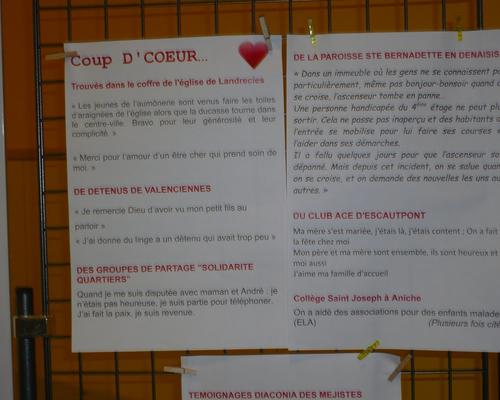 Coup D'COEUR...
Trouvés dans le coffre de l'église de Landrecies
« Les jeunes de l'aumônerie sont venus faire les toiles
d'araignées de l'église alors que la ducasse tourne dans
le centre-ville. Bravo pour leur générosité et leur
complicité. »
« Merci pour l'amour d'un être cher qui prend soin de
moi. »
DE DETENUS DE VALENCIENNES
« Je remercie Dieu d'avoir vu mon petit fils au
parloir »
« J'ai donné du linge a un détenu qui avait trop peu »
DES GROUPES DE PARTAGE "SOLIDARITE
QUARTIERS"
Quand je me suis disputée avec maman et André : je
n'étais pas heureuse, je suis partie pour téléphoner.
J'ai fait la paix, je suis revenue.
DE LA PAROISSE STE BERNADETTE EN DENAISIS
« Dans un immeuble où les gens ne se connaissent pas
particulièrement, même pas bonjour-bonsoir quand on
se croise, l'ascenseur tombe en panne...
Une personne handicapée du 4ème étage ne peut plus
sortir. Cela ne passe pas inaperçu et des habitants de
l'entrée se mobilise pour lui faire ses courses et
l'aider dans ses démarches.
Il a fallu quelques jours pour que l'ascenseur soit
dépanné. Mais depuis cet incident, on se salue quand
on se croise, et on demande des nouvelles les uns aux
autres. »
DU CLUB ACE D'ESCAUTPONT
Ma mère s'est mariée, j'étais là, j'étais content ; On a fait
la fête chez moi
Mon père et ma mère sont ensemble, ils sont heureux et
moi aussi
J'aime ma famille d'accueil
Collège Saint Joseph à Aniche
On a aidé des associations pour des enfants malades
(ELA) (Plusieurs fois cité)
TEMOIGNAGES DIACONIA DES MEJISTES